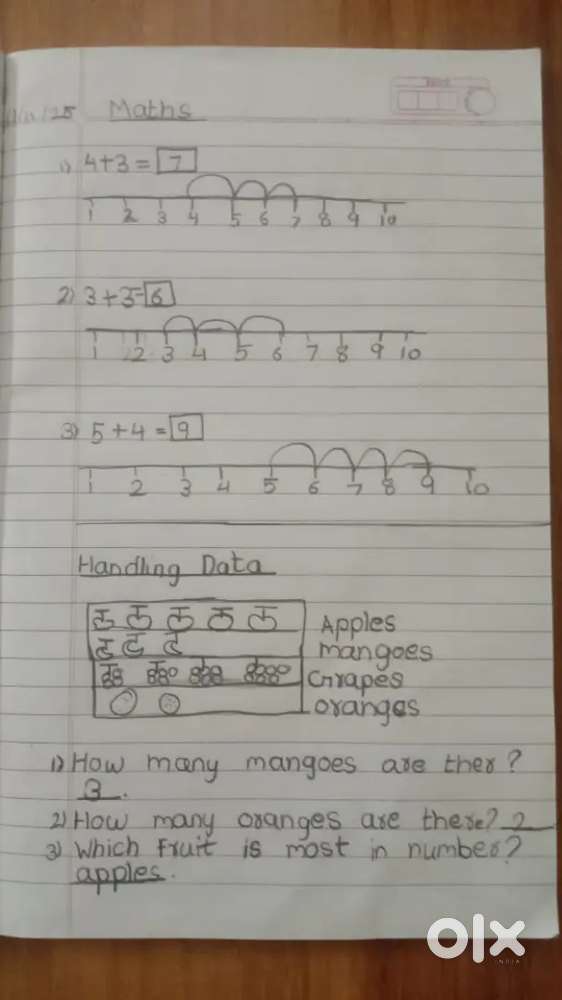 /25 Maths
1) 4+3 = 7
1 2 3 4 5 6 7 8 9 10
2) 3+3=6
1 2 3 4 5 6 7 8 9 10
3) 5+4 = 9
1 2 3 4 5 6 7 8 9 10
Handling Data
Apples
mangoes
Grapes
oranges
1) How many mangoes are ther?
3.
2) How many oranges are there? 2
3) Which Fruit is most in number?
apples.
olx
INDIA